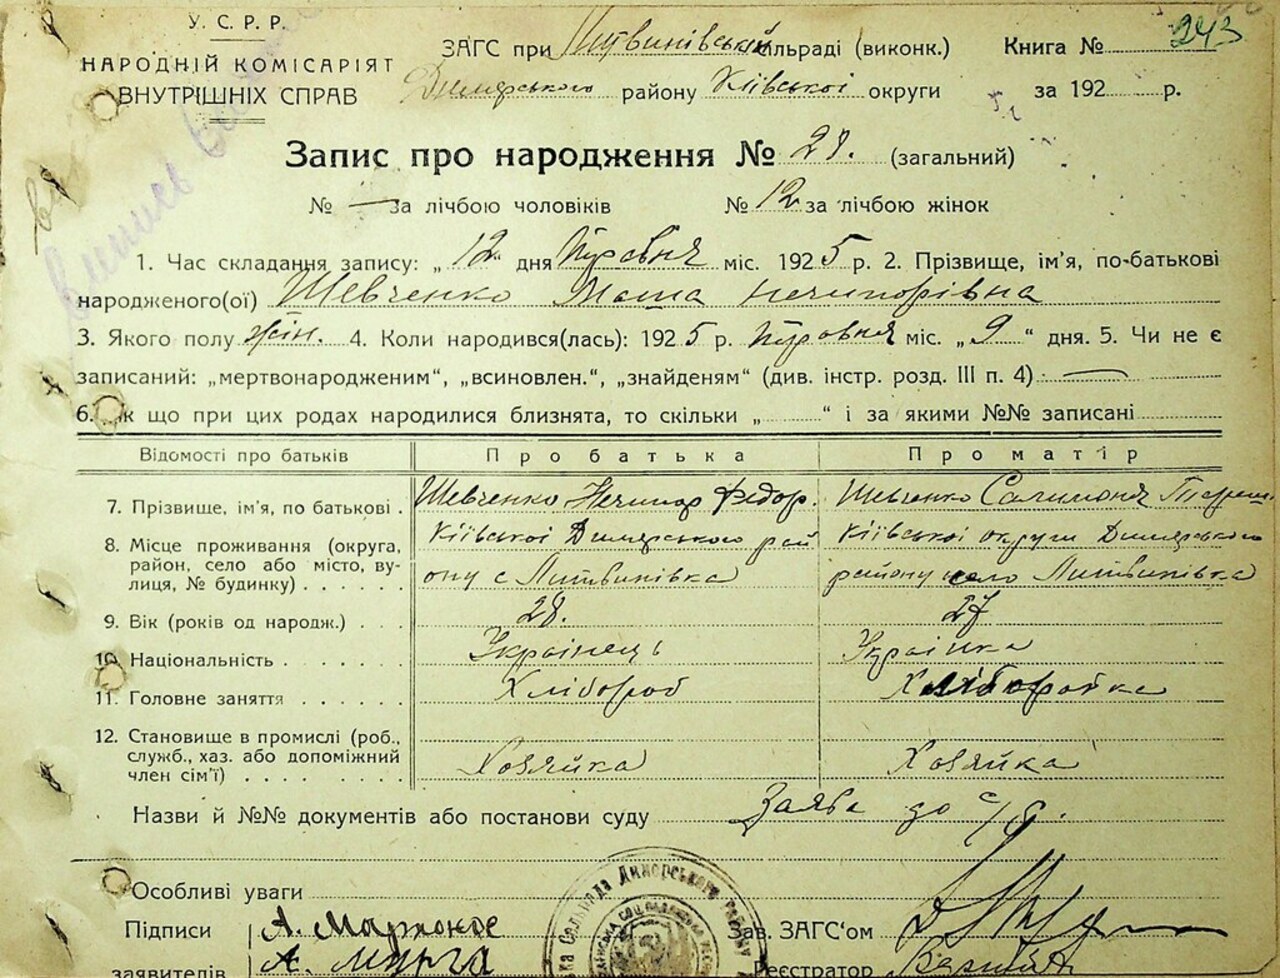 У. С. Р. Р.
НАРОДНІЙ КОМІСАРІЯТ
ВНУТРІШНІХ СПРАВ
ЗАГС при Литвинівській сільраді (виконк.) Книга № 243
Димерського району Київської округи за 192 р.
Запис про народження № 28. (загальний)
№ — за лічбою чоловіків № 12 за лічбою жінок
1. Час складання запису: „ 12 “ дня Травня міс. 1925 р. 2. Прізвище, ім'я, по-батькові
народженого(ої) Шевченко Маша Нечипорівна
3. Якого полу жін. 4. Коли народився(лась): 1925 р. Травня міс. „ 9 “ дня. 5. Чи не є
записаний: „мертвонародженим“, „всиновлен.“, „знайденям“ (див. інстр. розд. III п. 4) —
6. Як що при цих родах народилися близнята, то скільки „ “ і за якими №№ записані
Відомості про батьків Про батька Про матір
7. Прізвище, ім'я, по батькові . Шевченко Нечипор Федор. Шевченко
8. Місце проживання (округа, Київської Димерського рай Київської округи Димерського
район, село або місто, ву- ону с Литвинівка району село Литвинівка
лиця, № будинку) . . . . .
9. Вік (років од народж.) . . . 28. 27
10. Національність . . . . . . Українець Українка
11. Головне заняття . . . . . . Хлібороб Хліборобка
12. Становище в промислі (роб.,
служб., хаз. або допоміжний Хозяйка Хозяйка
член сім'ї) . . . . . . . .
Назви й №№ документів або постанови суду Заява до с/б.
Особливі уваги
Підписи А. Зав. ЗАГС'ом
заявителів А. Реєстратор
Сальрада Димерського району